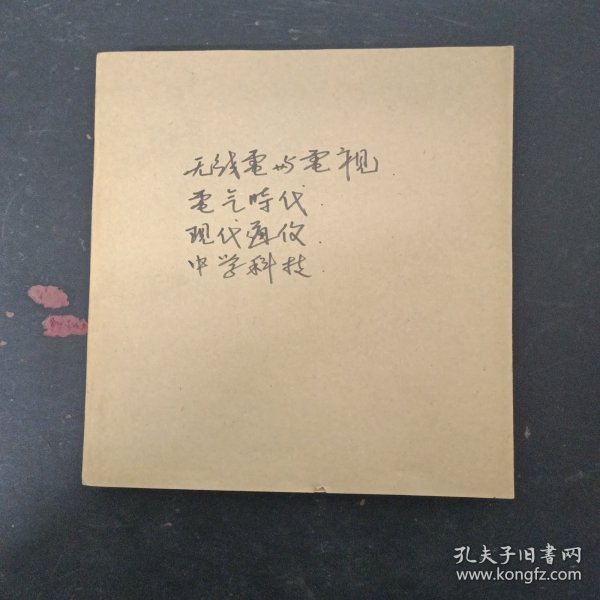 无线電与電视
電气時代
现代通仪
中学科技
孔夫子旧書网
www.kongfz.com